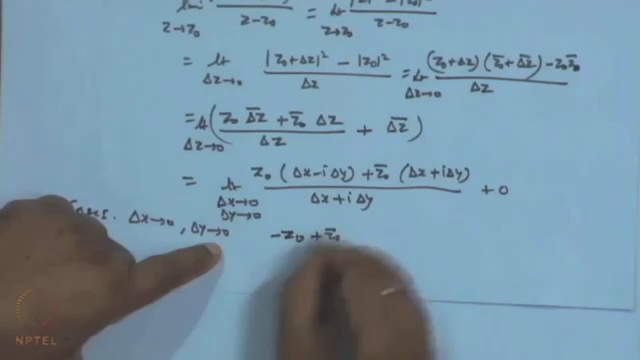 z→z₀ z-z₀ = lt z→z₀ z-z₀
= lt Δz→0 |z₀+Δz|² - |z₀|² / Δz = lt Δz→0 (z₀+Δz)(z̄₀+Δ̄z̄) - z₀z̄₀ / Δz
= lt Δz→0 ( z₀ Δ̄z̄ + z̄₀ Δz / Δz + Δ̄z̄ )
= lt Δx→0 Δy→0 z₀ (Δx-iΔy) + z̄₀ (Δx+iΔy) / Δx+iΔy + 0
Case I. Δx→0, Δy→0 -z₀ + z̄₀
NPTEL